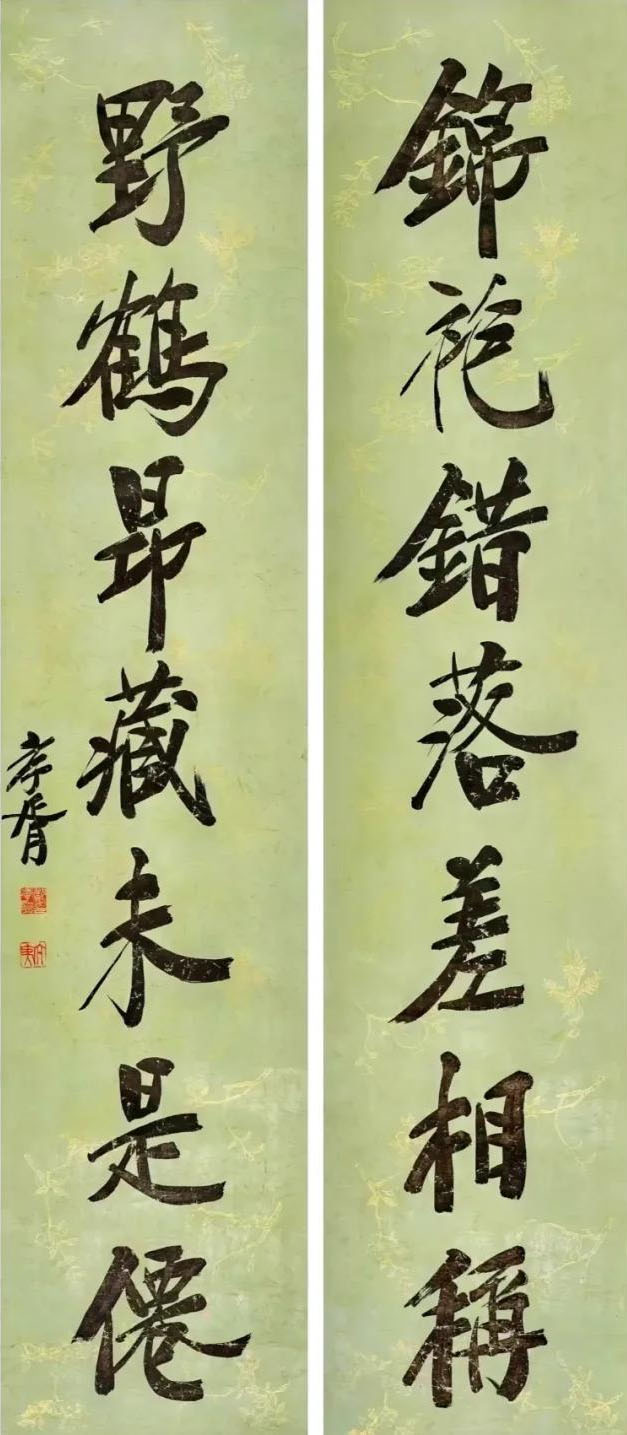 錦袍錯落差相稱
野鶴昂藏未是僊
孝胥